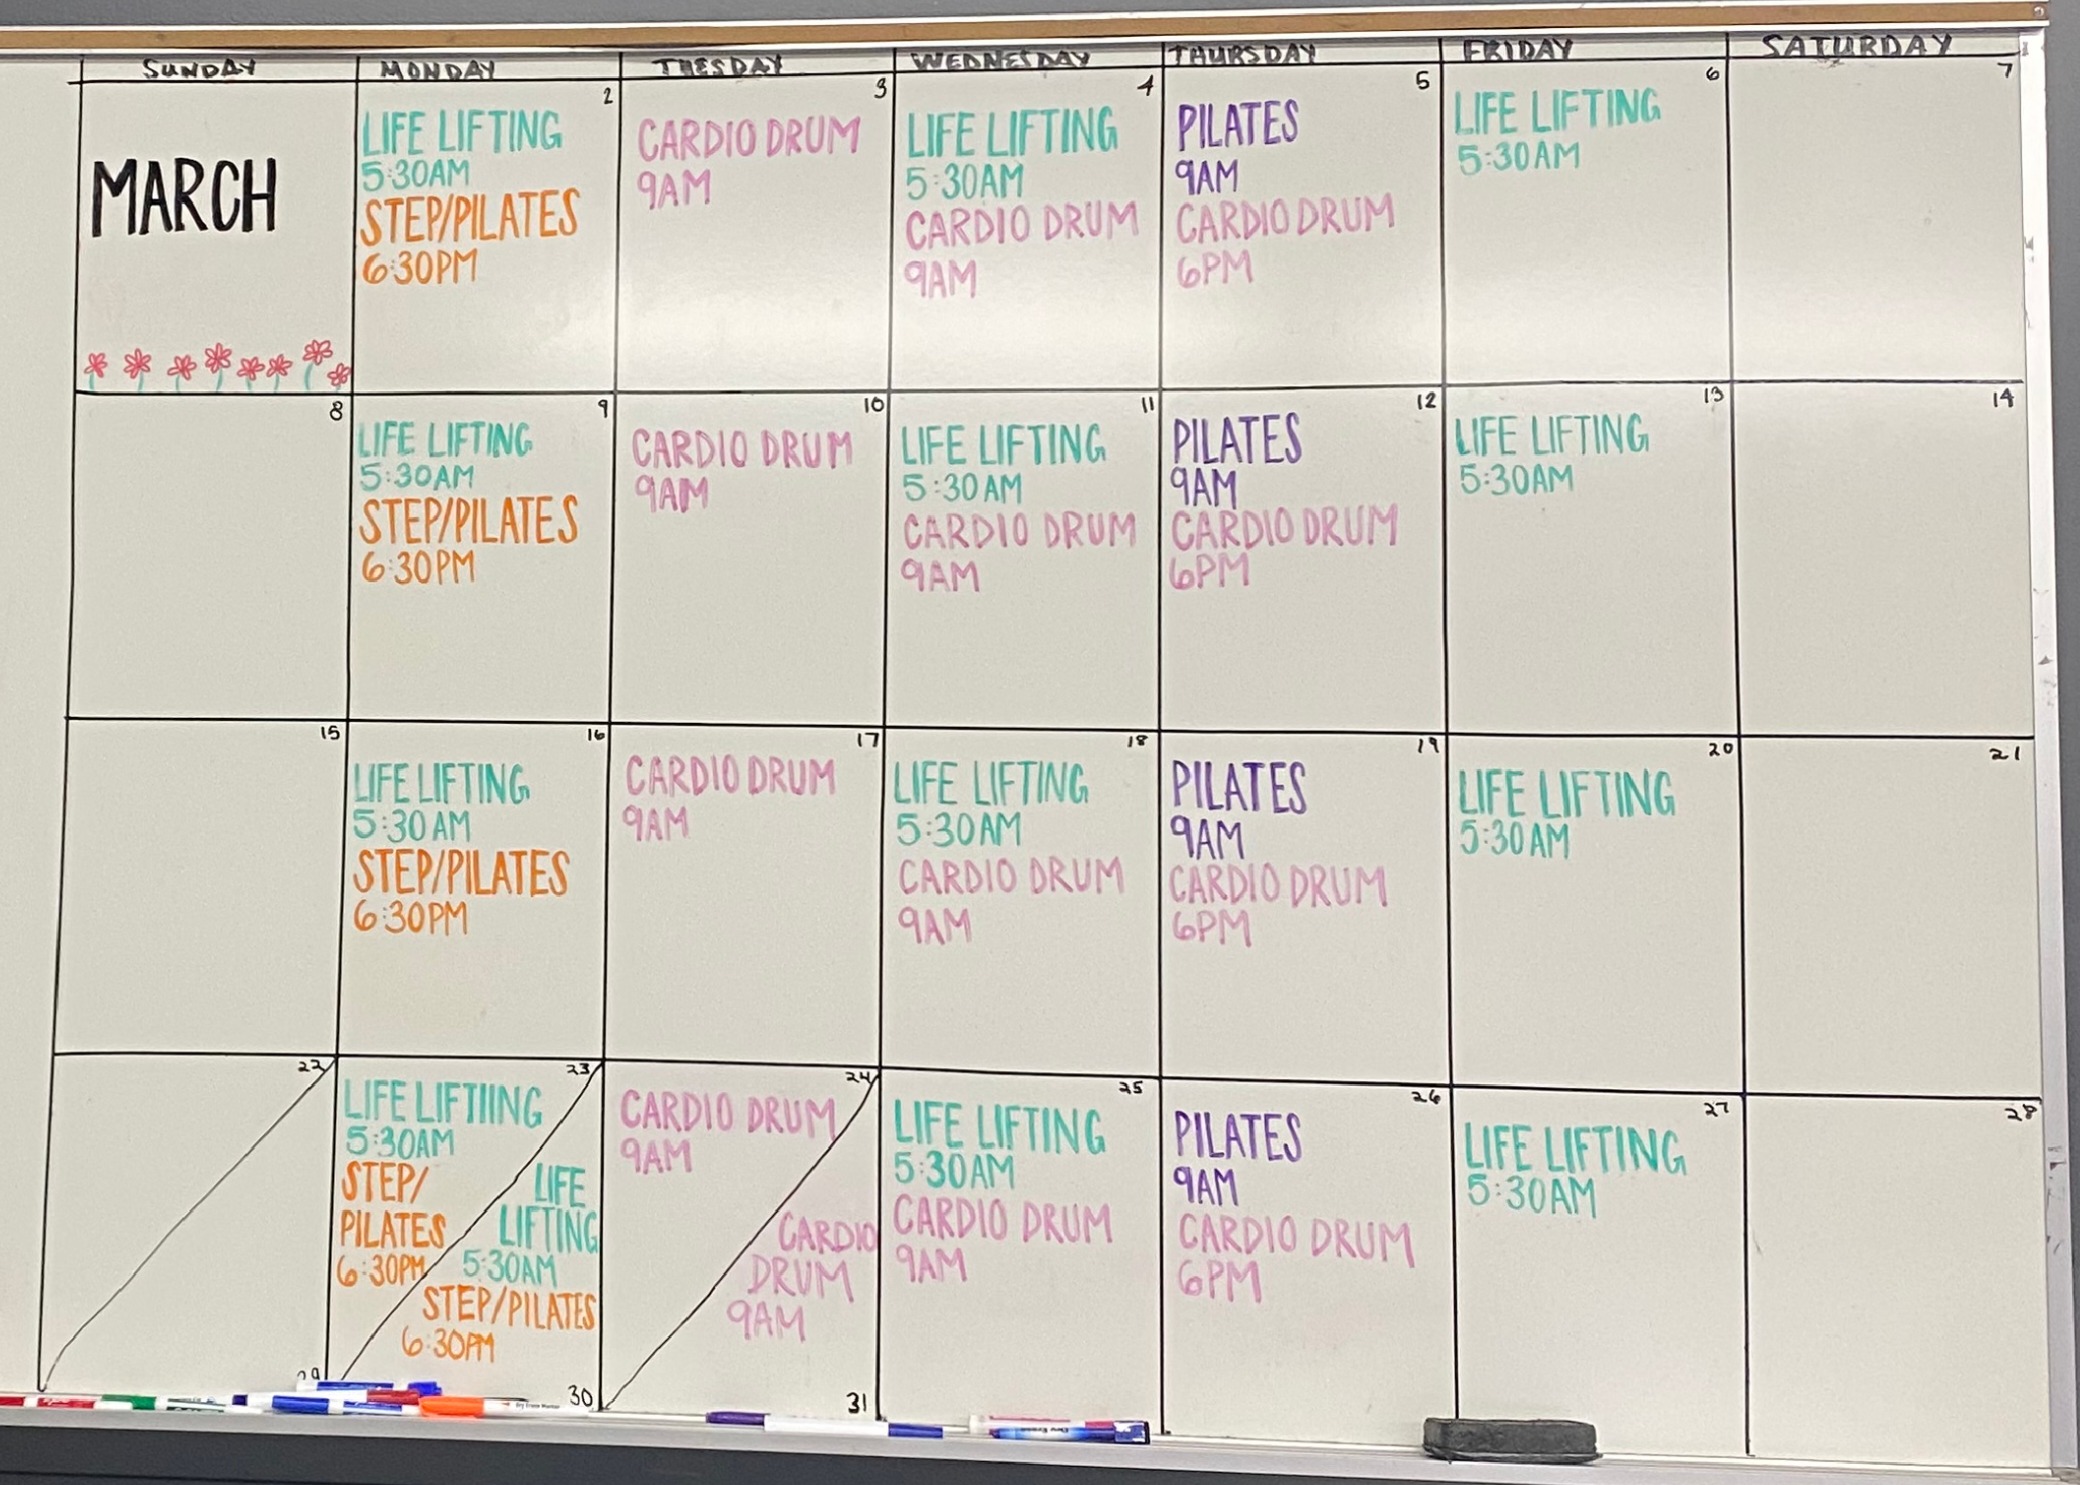 SUNDAY
MONDAY
TUESDAY
WEDNESDAY
THURSDAY
FRIDAY
SATURDAY
MARCH
2
LIFE LIFTING
5:30AM
STEP/PILATES
6:30PM
3
CARDIO DRUM
9AM
4
LIFE LIFTING
5:30AM
CARDIO DRUM
9AM
5
PILATES
9AM
CARDIO DRUM
6PM
6
LIFE LIFTING
5:30AM
7
8
9
LIFE LIFTING
5:30AM
STEP/PILATES
6:30PM
10
CARDIO DRUM
9AM
11
LIFE LIFTING
5:30AM
CARDIO DRUM
9AM
12
PILATES
9AM
CARDIO DRUM
6PM
13
LIFE LIFTING
5:30AM
14
15
16
LIFE LIFTING
5:30AM
STEP/PILATES
6:30PM
17
CARDIO DRUM
9AM
18
LIFE LIFTING
5:30AM
CARDIO DRUM
9AM
19
PILATES
9AM
CARDIO DRUM
6PM
20
LIFE LIFTING
5:30AM
21
22
29
23
LIFE LIFTIING
5:30AM
STEP/
PILATES
6:30PM
LIFE
LIFTING
5:30AM
STEP/PILATES
6:30PM
30
24
CARDIO DRUM
9AM
CARDIO
DRUM
9AM
31
25
LIFE LIFTING
5:30AM
CARDIO DRUM
9AM
26
PILATES
9AM
CARDIO DRUM
6PM
27
LIFE LIFTING
5:30AM
28